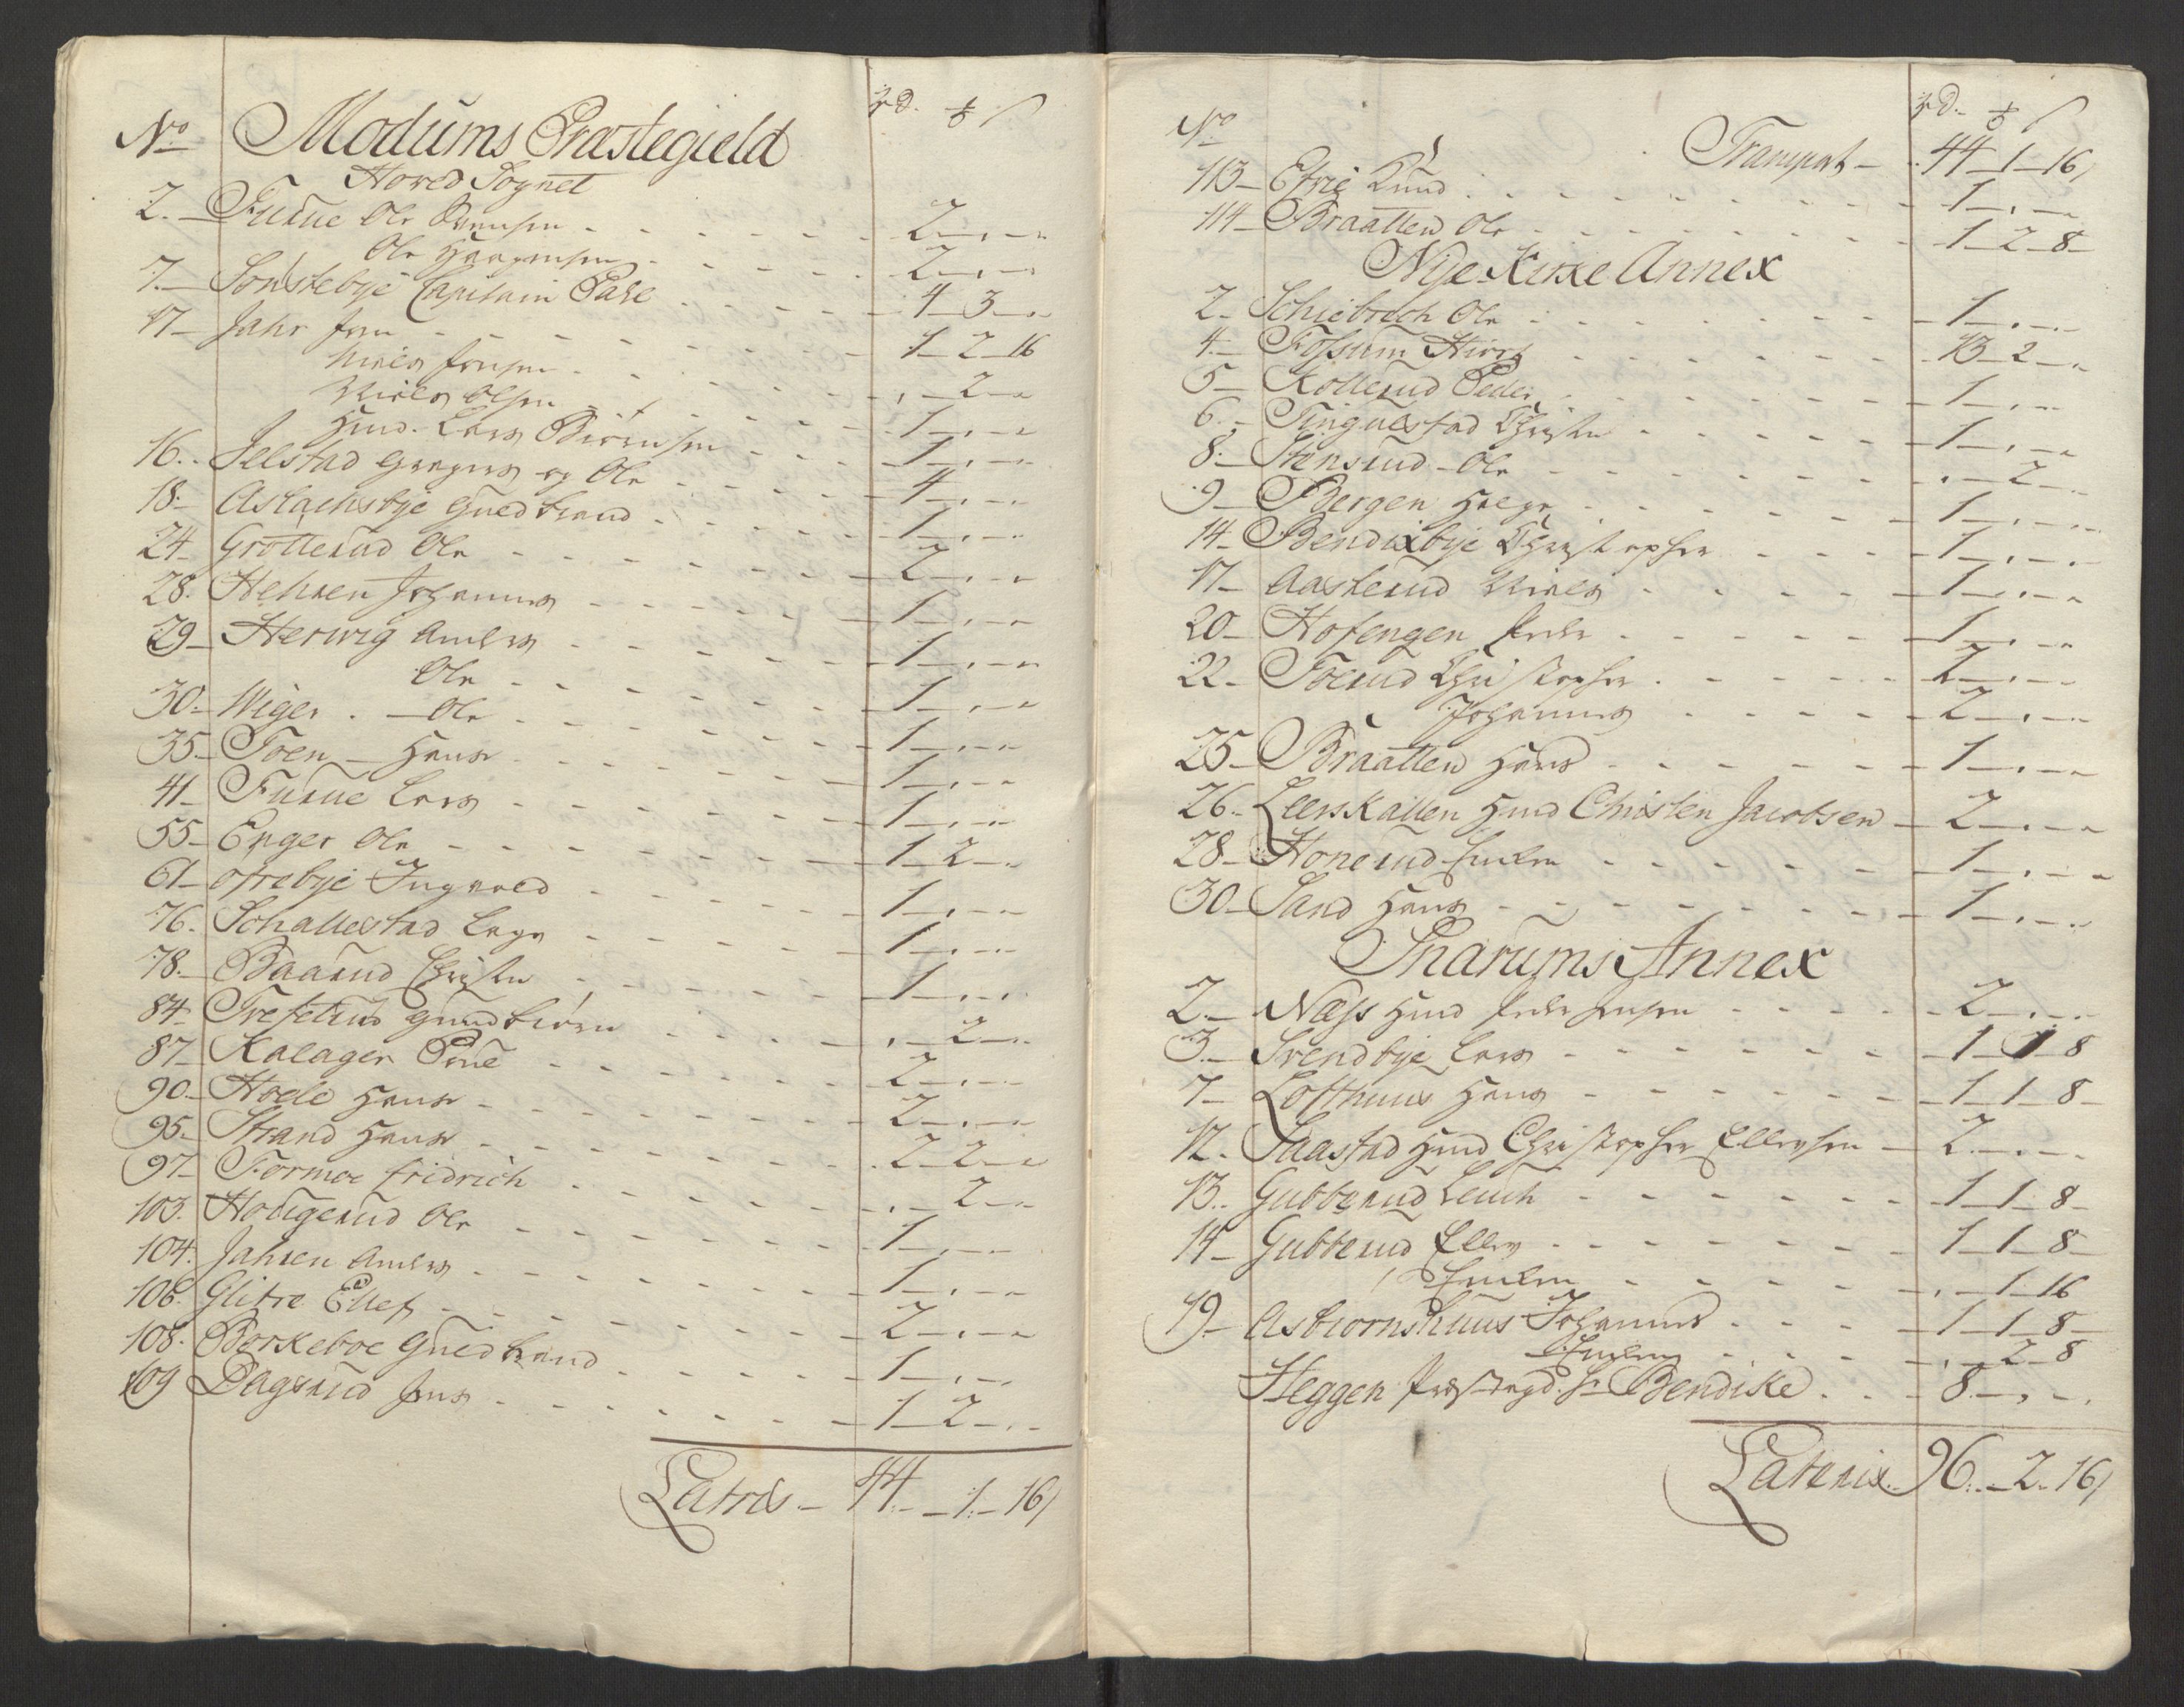 No Modums Præstegield rd. ß
Hoved Sognet
2. Furue Ole Svensen - - - 2 - . - -
Ole Haagensen - - - 2 - . - -
7. Sønstebye Capitain Pahl - - - 4 - 3 - -
17 Jahr Jon - - - 1 - 2 - 16
Niels Jonsen - - - . - 2 - -
Niels Olsen - - - 1 - . - -
Hmd. Lars Biørnsen - - - 1 - . - -
16. Selstad Gregers og Ole - - - 4 - . - -
18. Aslachsbye Gudbrand - - - 1 - . - -
24. Grøtterud Ole - - - 2 - . - -
28. Hehnen Johannes - - - 1 - . - -
29 Herwig Anders - - - 1 - . - -
Ole - - - 1 - . - -
30. Wiger Ole - - - 1 - . - -
35 Toen Hans - - - 1 - . - -
41 Furue Lars - - - 1 - . - -
55 Enger Ole - - - 1 - 2 - -
61 ofrebye Ingvold - - - 1 - . - -
76. Schallestad Lage - - - 1 - . - -
78. Baarud Christen - - - 1 - . - -
84 Trefelrud Gundbiørn - - - . - 2 - -
87 Kalager - - - 2 - . - -
90. Hoele Hans - - - 2 - . - -
95. Strand Hans - - - 2 - 2 - -
97. Formoe fridrich - - - . - 2 - -
103. Hougerud Ole - - - 1 - . - -
104. Jahren Anders - - - 1 - . - -
106. Glitre Ellef - - - 2 - . - -
108. Borkeboe Gudbrand - - - 1 - . - -
109 Dagsrud Jens - - - 1 - 2 - -
Latris - 44 - 1 - 16
No rd. ß
Transport - 44 - 1 - 16
113 Efrie Knud - - - 1 - . - -
114 Braatten Ole - - - 1 - 2 - 8
Nye Kirke Annex
2. Schiebrech Ole - - - 1 - . - -
4. Fossum - - - 13 - 2 - -
5 Kollerud Peder - - - 1 - . - -
6. Tingelstad Christen - - - 1 - . - -
8. Stensrud Ole - - - . - 2 - -
9 Bergen Helge - - - 1 - . - -
14. Bendixbye Christopher - - - 1 - . - -
17 Aasterud Niels - - - 1 - . - -
20 Hofengen Peder - - - 1 - . - -
22. Toerud Christopher - - - 2 - . - -
Johannes - - - 2 - . - -
25 Braatten Hans - - - 1 - . - -
26. Leerskallen Hmd Christen Jacobsen - 2 - . - -
28 Honerud Enken - - - 1 - . - -
30 Sand Hans - - - 1 - . - -
Snarums Annex
2. Næss Hmd Peder Jensen - - - 2 - . - -
3. Svendbye Lars - - - 1 - 1 - 8
7 Lofthuus Hans - - - 1 - 1 - 8
12. Saastad Hmd Christopher Ellevsen - 2 - . - -
13. Gubberud - - - 1 - 1 - 8
14 Gubberud Ellev - - - 1 - 1 - 8
Enken - - - . - 1 - 16
19 Asbiornshuus Johannes - - - 1 - 1 - 8
Enken - - - . - 2 - 8
Heggen Præstegd. Hr Bendike - - 8 - . - .
Lateris 96 - 2 - 16